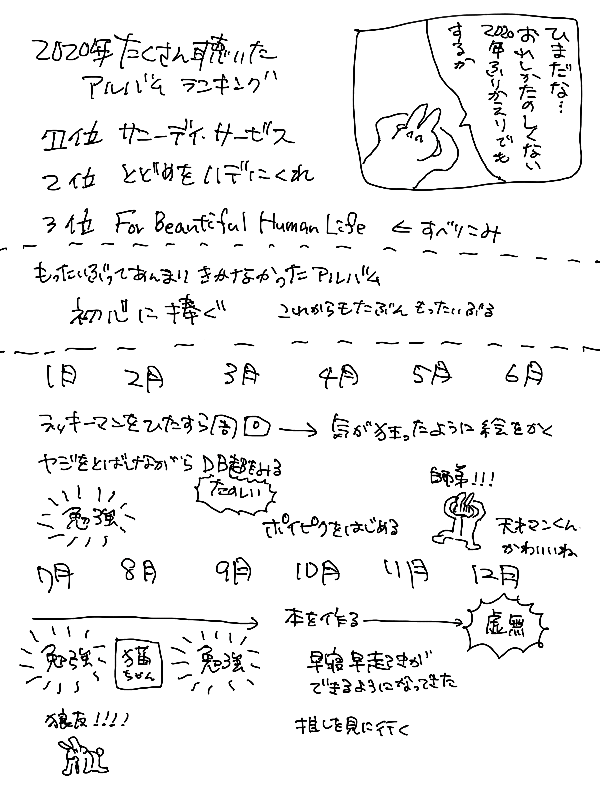 2020年たくさん聴いた
アルバム ランキング
ひまだな…
おれしかたのしくない
2020年ふりかえりでも
するか
1位 サニーデイ・サービス
2位 とどめをハデにくれ
3位 For Beautiful Human Life ← すべりこみ
もったいぶってあんまり きかなかったアルバム
初心に捧ぐ これからもたぶん もったいぶる
1月 2月 3月 4月 5月 6月
ラッキーマンをひたすら周回 → 気が狂ったように絵をかく
ヤジをとばしながら DB超をみる
たのしい
師弟!!!
勉強
ポイピクをはじめる
天才マンくん
かわいいね
7月 8月 9月 10月 11月 12月
本を作る → 虚無
勉強 猫ちゃん 勉強
早寝早起きが
できるようになってきた
狼友!!!!
推しを見に行く